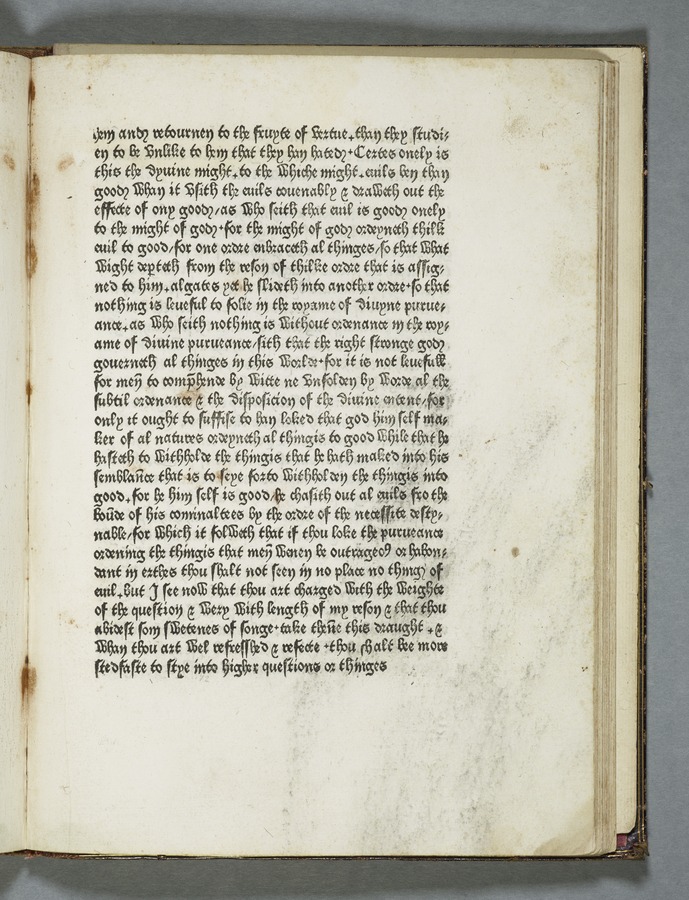 hem and retournen to the fruyte of Vertue, than they studi⸗
en to be Vnlike to hem that they han hated, Certes onely is
this the dyuine might, to the Whiche might, euils ben than
good Whan it Vsith the euils couenably & draweth out the
effecte of ony good/as Who seith that euil is good onely
to the might of god, for the might of god ordeyneth thilk
euil to good/for one ordre enbraceth al thinges/so that What
Wight depteth from the reson of thilke ordre that is assig⸗
ned to him, algates yet he slideth into another ordre, so that
nothing is leueful to folie in the royame of diuyne purue⸗
ance, as Who seith nothing is Without ordenance in the roy⸗
ame of diuine purueance/sith that the right stronge god
gouerneth al thinges in this World, for it is not leuefull
for men to comp̄hende by Witte ne Vnfolden by Word al the
subtil ordenance & the disposicion of the diuine entent/for
only it ought to suffise to han loked that god him self ma⸗
ker of al natures ordeyneth al thingis to good While that he
hasteth to Withholde the thingis that he hath maked into his
semblance that is to seye forto Withholden the thingis into
good, for he him self is good/he chasith out al euils fro the
boūde of his cominaltees by the ordre of the necessite desty⸗
nable/for Which it folweth that if thou loke the purueance
ordening the thingis that men Wenen be outrageoꝰ or habon⸗
dant in erthes thou shalt not seen in no place no thing of
euil, But I see now that thou art charged With the Weighte
of the question & Wery With length of my reson & that thou
abidest som swetenes of songe, take thēne this draught, &
Whan thou art Wel refresshed & refecte, thou shalt bee more
stedfaste to stye into higher questions or thinges